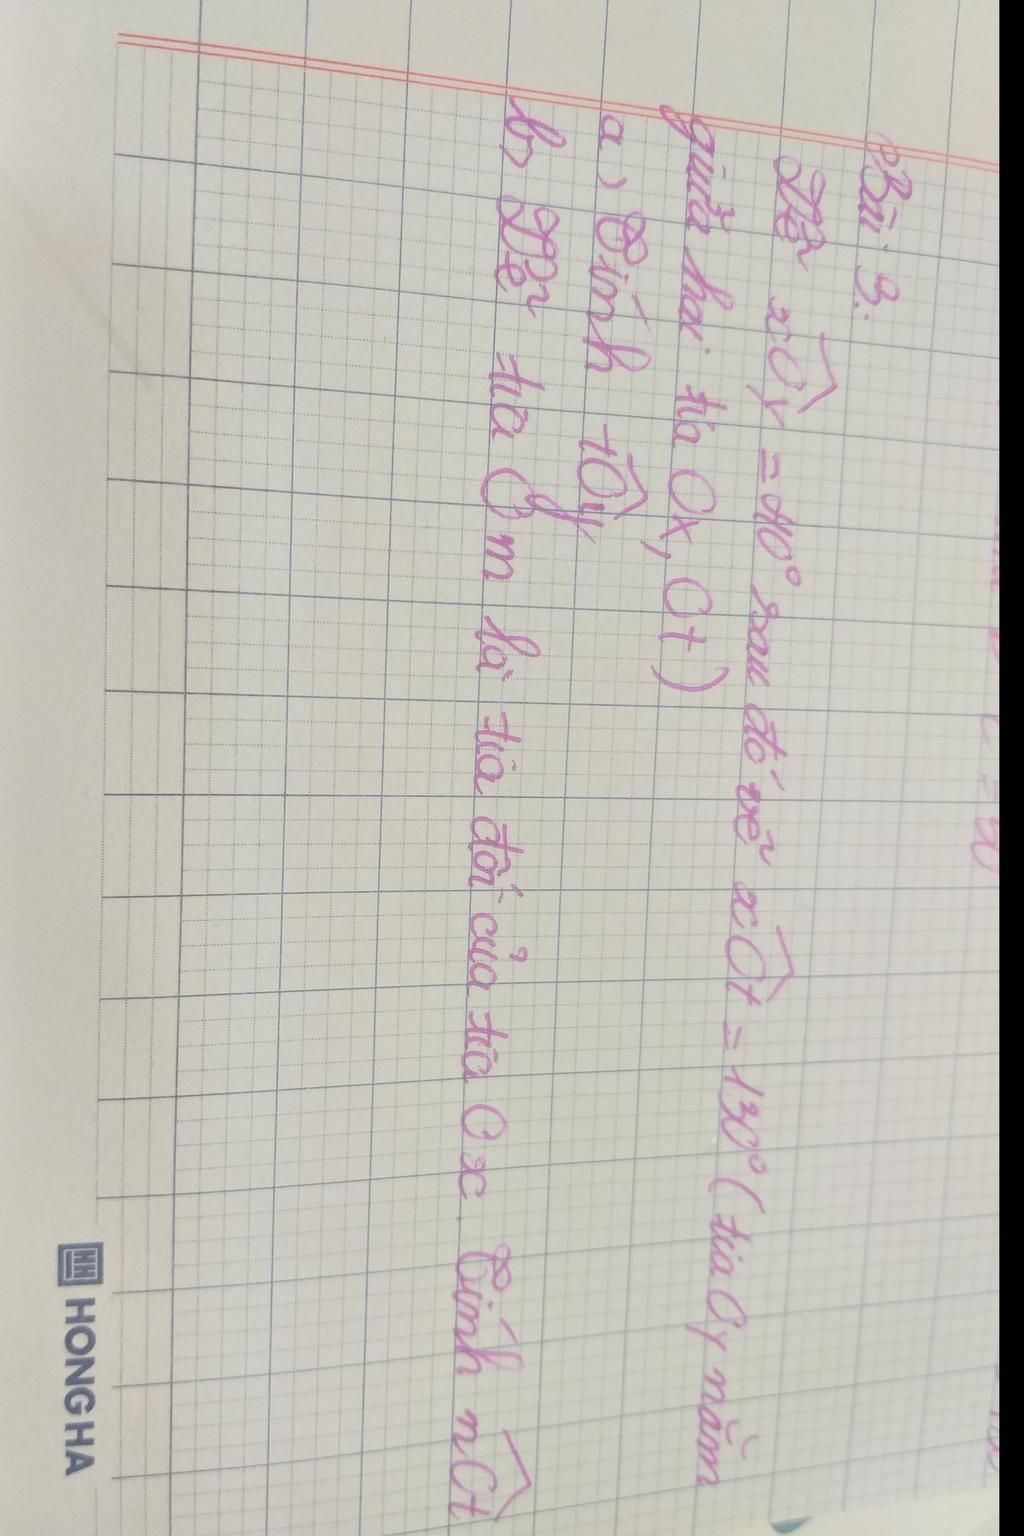 Bài 3.
Vẽ xOy = 40° sau đó vẽ xOt = 130° (tia Oy nằm
giữa hai tia Ox, Ot)
a) Tính tOy
b) Vẽ tia Om là tia đối của tia Ox Tính nOt
HONG HA